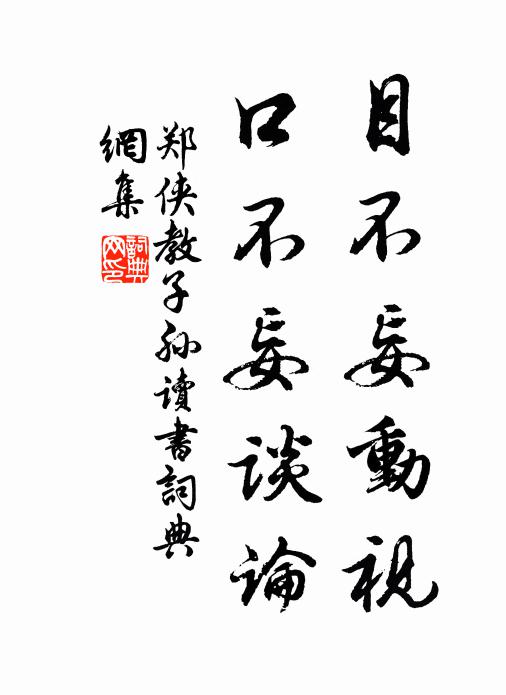 目不妄動視
口不妄談論
郑侠教子孙讀書詞典
網集
詞典
网印